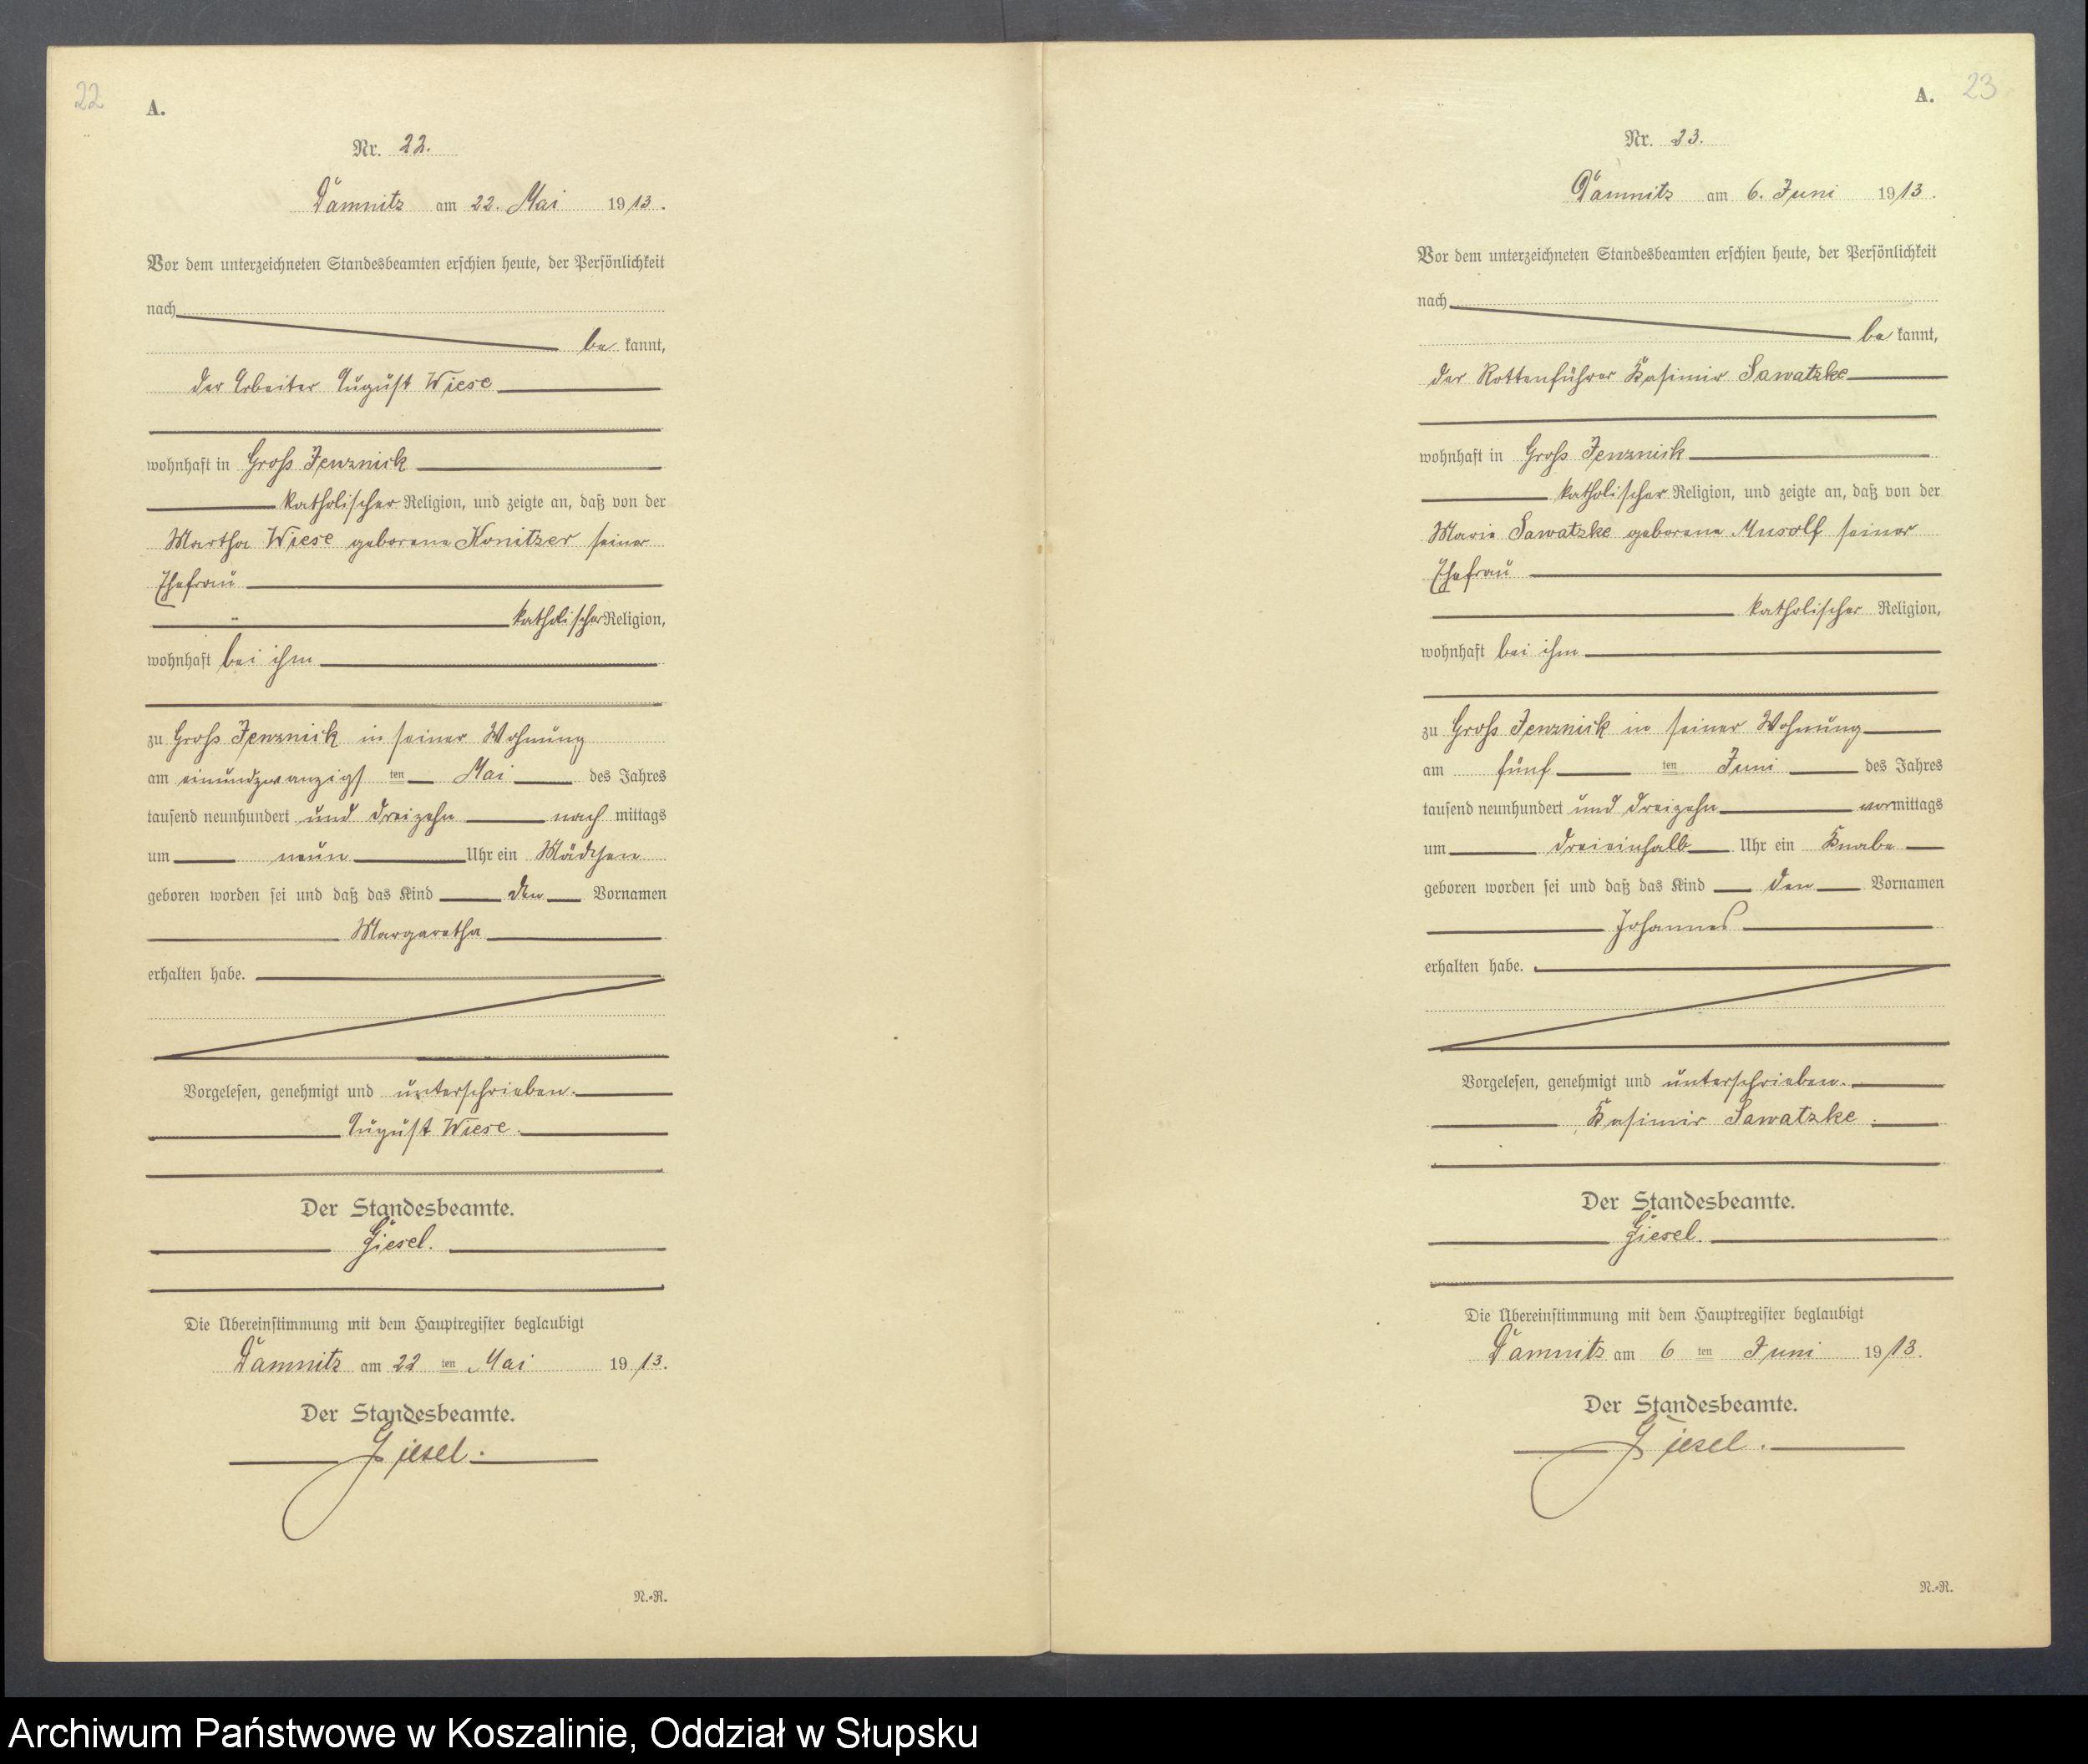 22
A.
Nr. 22.
Damnitz am 22. Mai 1913.
Vor dem unterzeichneten Standesbeamten erschien heute, der Persönlichkeit
nach
be kannt,
der Arbeiter August Wiese
wohnhaft in Groß Jenznick
katholischer Religion, und zeigte an, daß von der
Martha Wiese geborene Konitzer seiner
Ehefrau
katholischer Religion,
wohnhaft bei ihm
zu Groß Jenznick in seiner Wohnung
am einundzwanzigs ten Mai des Jahres
tausend neunhundert und dreizehn nach mittags
um neun Uhr ein Mädchen
geboren worden sei und daß das Kind den Vornamen
Margaretha
erhalten habe.
Vorgelesen, genehmigt und unterschrieben.
August Wiese.
Der Standesbeamte.
Giesel.
Die Übereinstimmung mit dem Hauptregister beglaubigt
Damnitz am 22 ten Mai 1913.
Der Standesbeamte.
Giesel.
N.-R.
A. 23
Nr. 23.
Damnitz am 6. Juni 1913.
Vor dem unterzeichneten Standesbeamten erschien heute, der Persönlichkeit
nach
be kannt,
der Rottenführer Kasimir Sawatzke
wohnhaft in Groß Jenznick
katholischer Religion, und zeigte an, daß von der
Marie Sawatzke geborene Musolf seiner
Ehefrau
katholischer Religion,
wohnhaft bei ihm
zu Groß Jenznick in seiner Wohnung
am fünf ten Juni des Jahres
tausend neunhundert und dreizehn vormittags
um dreieinhalb Uhr ein Knabe
geboren worden sei und daß das Kind den Vornamen
Johannes
erhalten habe.
Vorgelesen, genehmigt und unterschrieben.
Kasimir Sawatzke.
Der Standesbeamte.
Giesel.
Die Übereinstimmung mit dem Hauptregister beglaubigt
Damnitz am 6 ten Juni 1913.
Der Standesbeamte.
Giesel.
N.-R.
Archiwum Państwowe w Koszalinie, Oddział w Słupsku